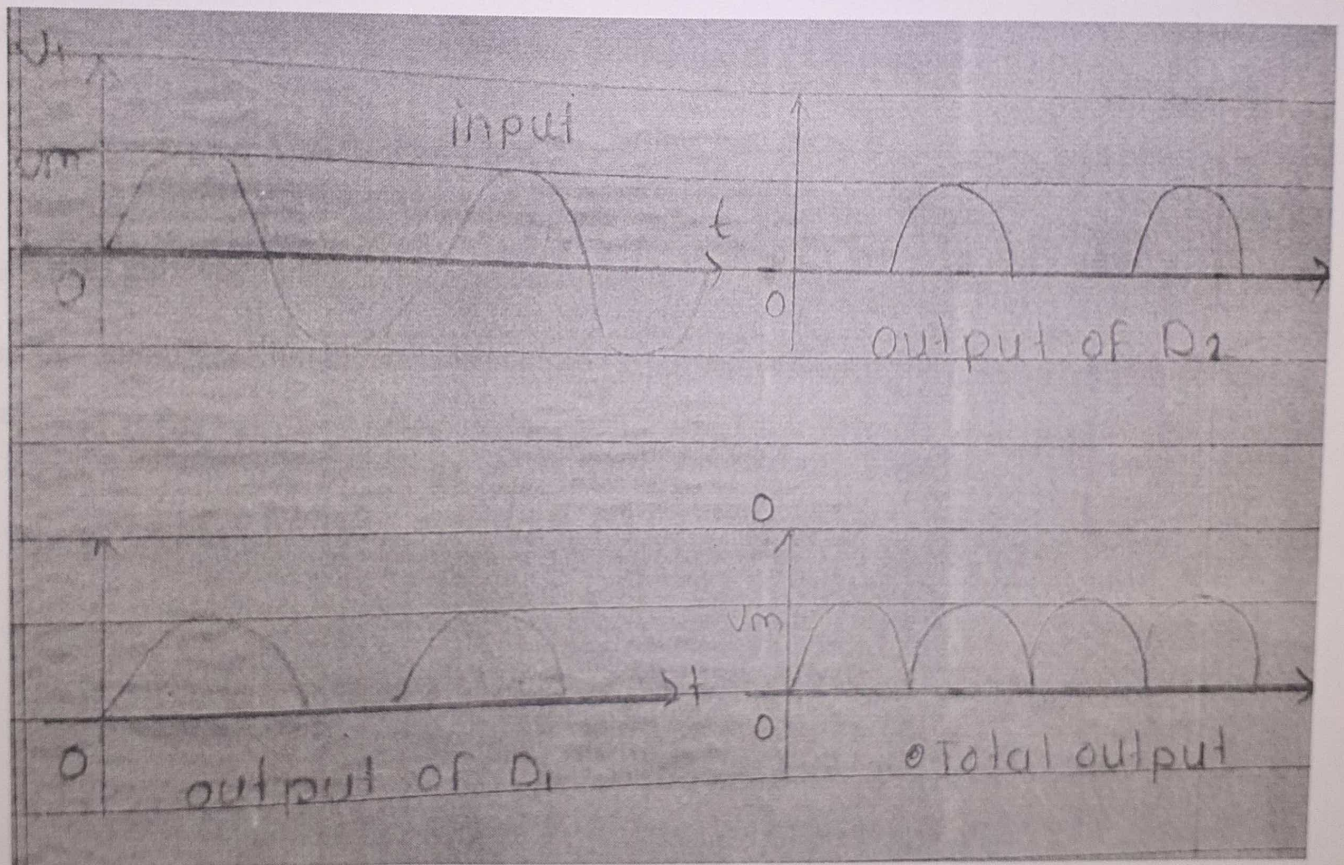 input
Vm
t
0
0
output of D2
0
Vm
t
0
0
output of D1
Total output